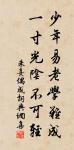 少年易老學難成
一寸光陰不可輕
朱熹偶成詞典網